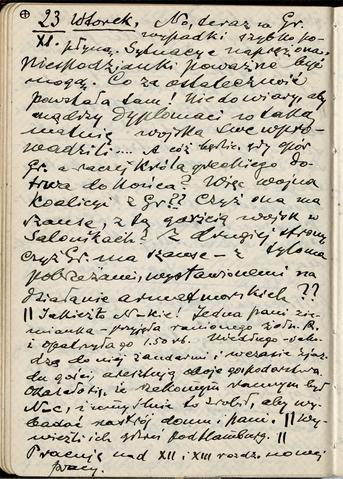 23 Wtorek. No, teraz w Gr.
XI. wypadki szybko po-
płyną. Sytuacye naprężone.
Niespodzianki poważne być
mogą. Co za ostateczność
powstała tam! Nie do wiary, aby
mądrzy dyplomaci w taką
matnię wojska swe wpro-
wadzili... A cóż będzie, gdy upór
Gr. a raczej króla greckiego do-
trwa do końca? Więc wojna
koalicyi z Gr?? Czyż ona ma
szanse, z tą garścią wojsk w
Salonikach? Z drugiej strony
czyż Gr. ma szanse – z tyloma
pobrzeżami, wystawionemi na
działanie armat morskich??
|| Jakież to Niemcy! Jedna pani zie-
mianka – przyjęła rannego żołn. R.
i opatrzyła go. 150 rb. Niedługo
do niej żandarmi i wczasie zjaz-
du gości, aresztują oboje gospodarstwa.
Okazało się, że rzekomym rannym był
N-c, i umyślnie to zrobił, aby wy-
badać nastrój domu i pani. || Wy-
wieźli ich gdzieś pod Hamburg. ||
Pracuję nad XII i XIII rozdz. nowej
pracy.